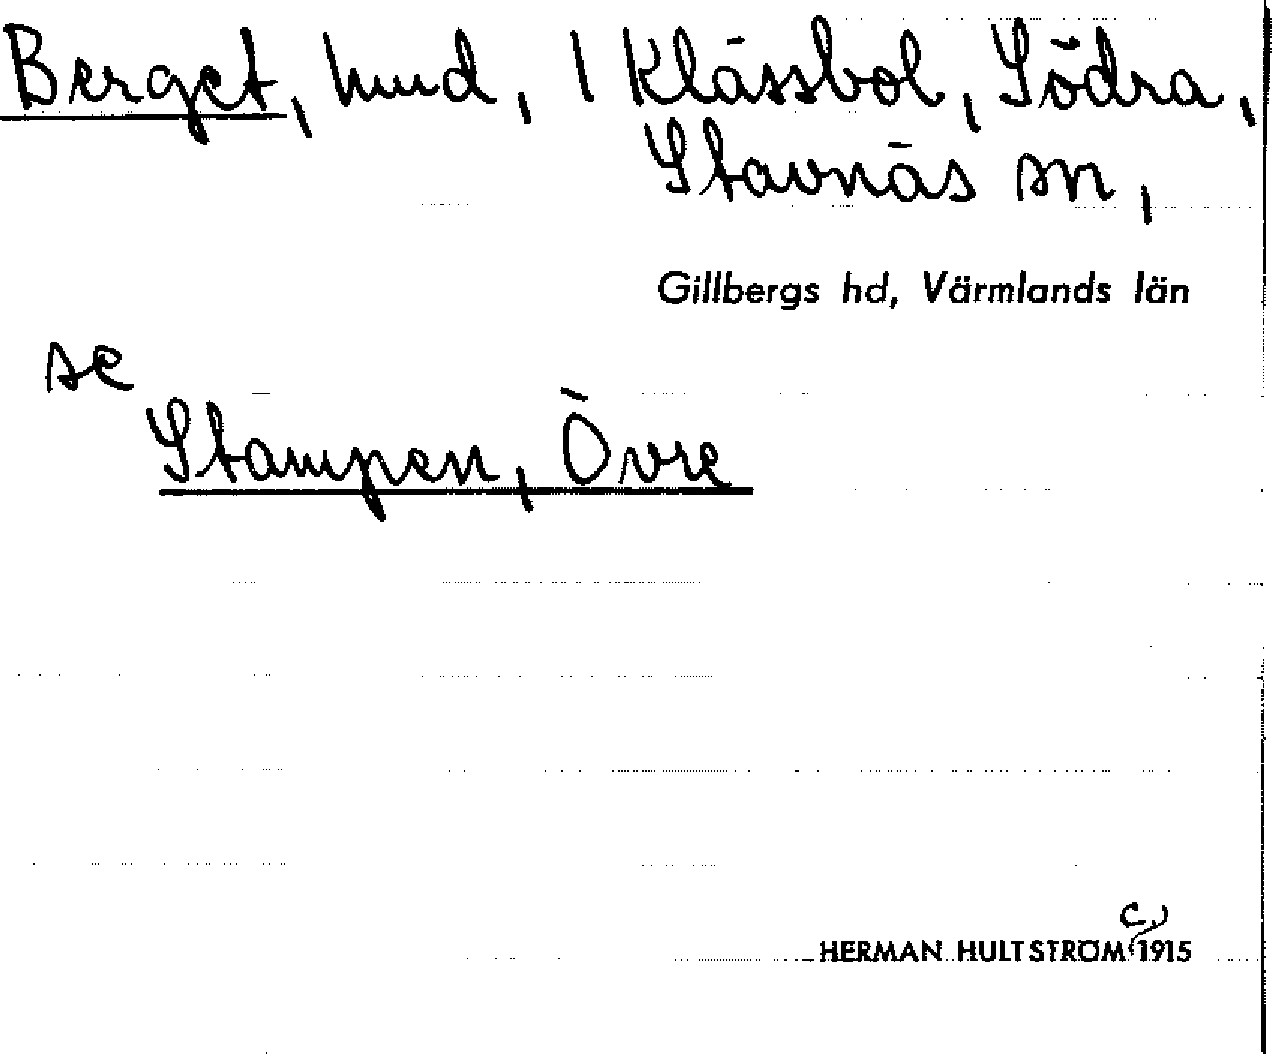 Berget, hmd, 1 Klässbol, Södra,
Stavnäs sn,
Gillbergs hd, Värmlands län
se
Stampen, Övre
c.
HERMAN HULTSTRÖM 1915